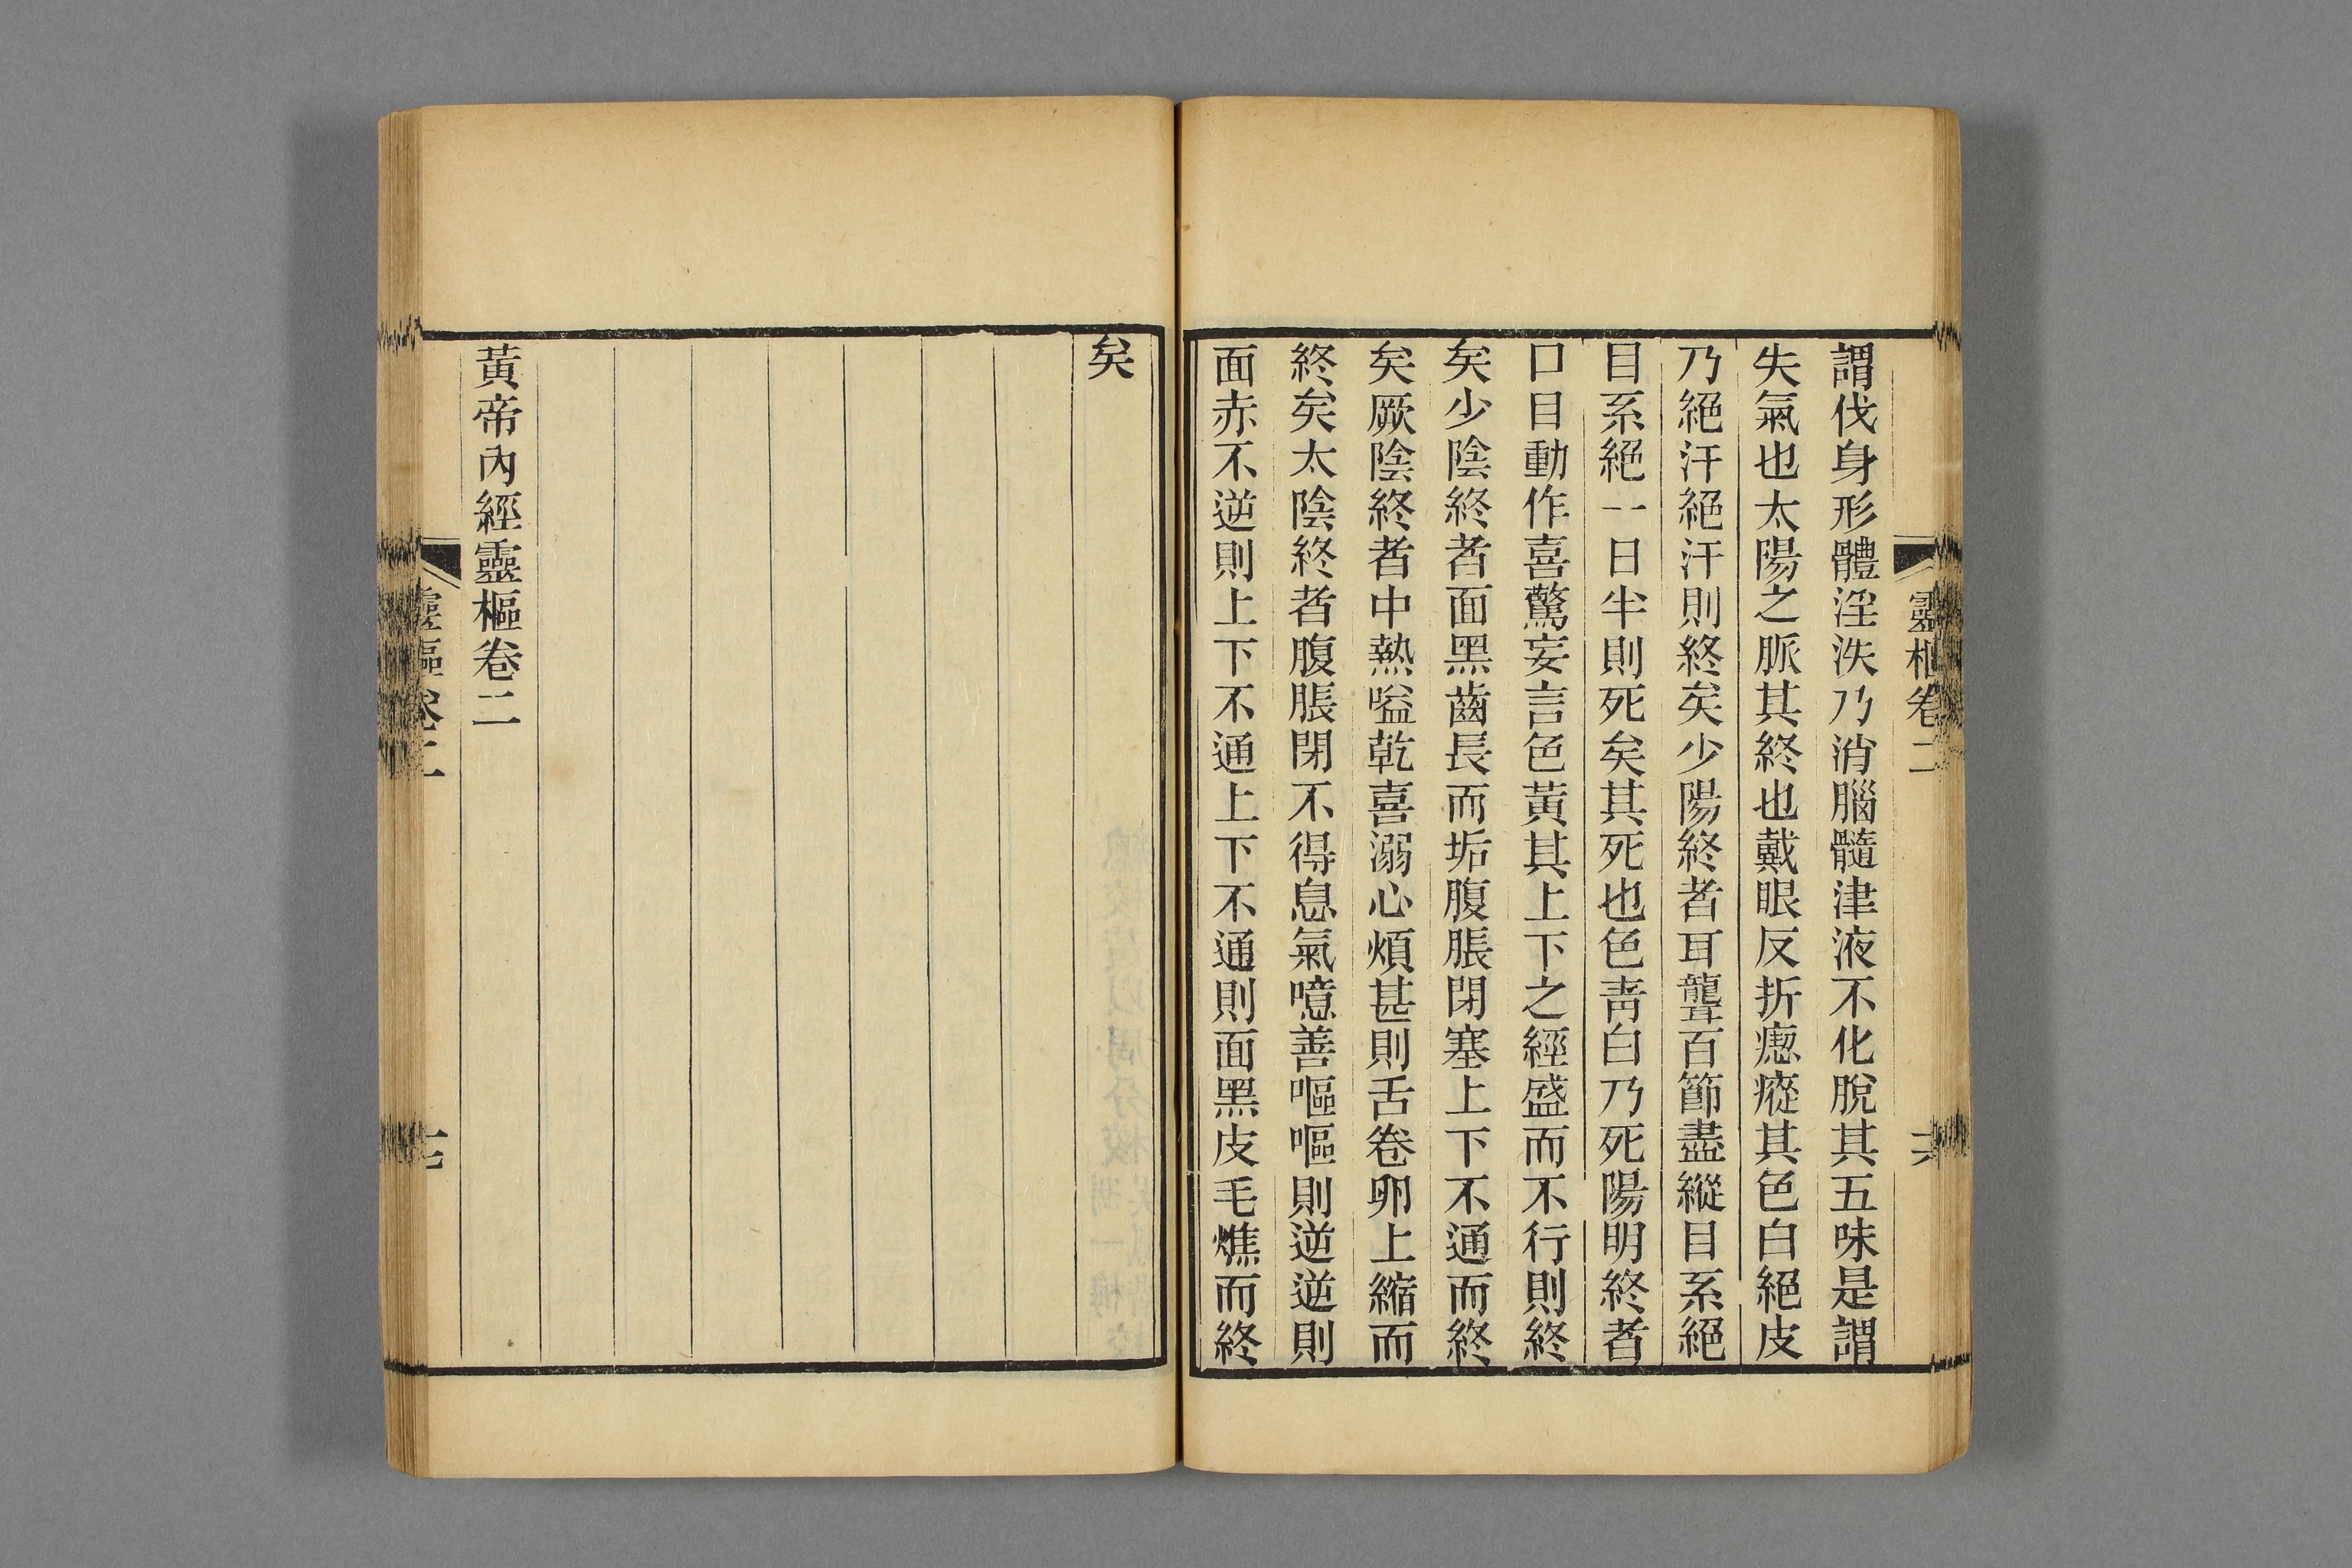 靈樞卷二
謂伐身形體淫泆乃消腦髓津液不化脫其五味是謂
失氣也太陽之脈其終也戴眼反折瘛瘲其色白絕皮
乃絕汗絕汗則終矣少陽終者耳聾百節盡縱目系絕
目系絕一日半則死矣其死也色青白乃死陽明終者
口目動作喜驚妄言色黃其上下之經盛而不行則終
矣少陰終者面黑齒長而垢腹脹閉塞上下不通而終
矣厥陰終者中熱嗌乾喜溺心煩甚則舌卷卵上縮而
終矣太陰終者腹脹閉不得息氣噫善嘔嘔則逆逆則
面赤不逆則上下不通上下不通則面黑皮毛燋而終
矣
黃帝內經靈樞卷二
靈樞卷二